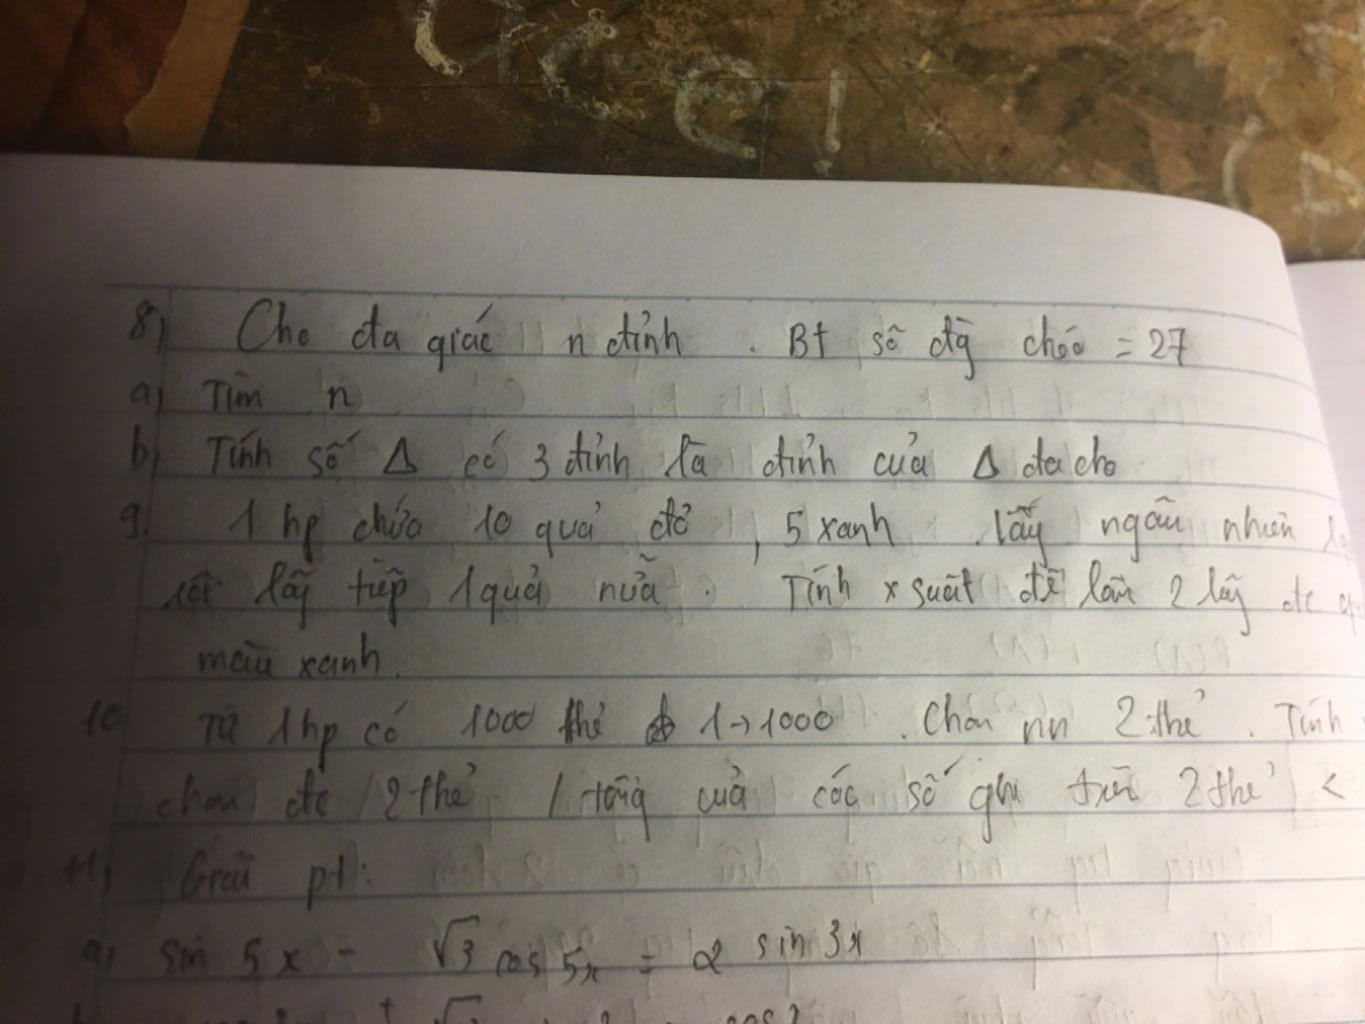 8) Cho đa giác n đỉnh . Bt số đg chéo = 27
a) Tìm n
b) Tính số Δ có 3 đỉnh là đỉnh của Δ đa cho
9. 1 hp chứa 10 quả đỏ , 5 xanh . lấy ngẫu nhiên
rồi lấy tiếp 1 quả nữa . Tính x suất để lần 2 lấy đc
màu xanh.
10 Từ 1 hp có 1000 thẻ 1→1000 . Chọn nn 2 thẻ . Tính
chọn đc 2 thẻ / tổng của các số ghi trên 2 thẻ <
11) Giải pt:
a) sin 5x - √3 cos 5x = 2 sin 3x